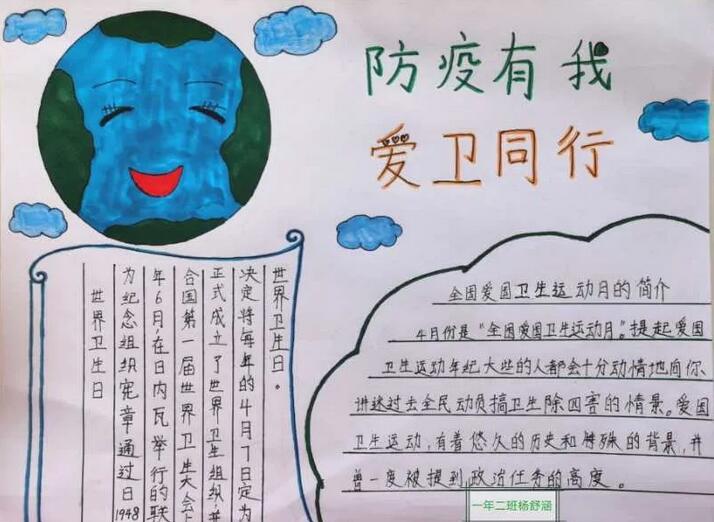 防疫有我
爱卫同行
世界卫生日
为纪念组织宪章通过日1948
年6月,在日内瓦举行的联
合国第一届世界卫生大会
正式成立了世界卫生组织,并
决定将每年的4月7日定为
世界卫生日。
全国爱国卫生运动月的简介
4月份是“全国爱国卫生运动月”。提起爱国
卫生运动年纪大些的人都会十分动情地向你
讲述过去全民动员搞卫生除四害的情景。爱国
卫生运动,有着悠久的历史和特殊的背景,并
曾一度被提到政治任务的高度。
一年二班杨舒涵